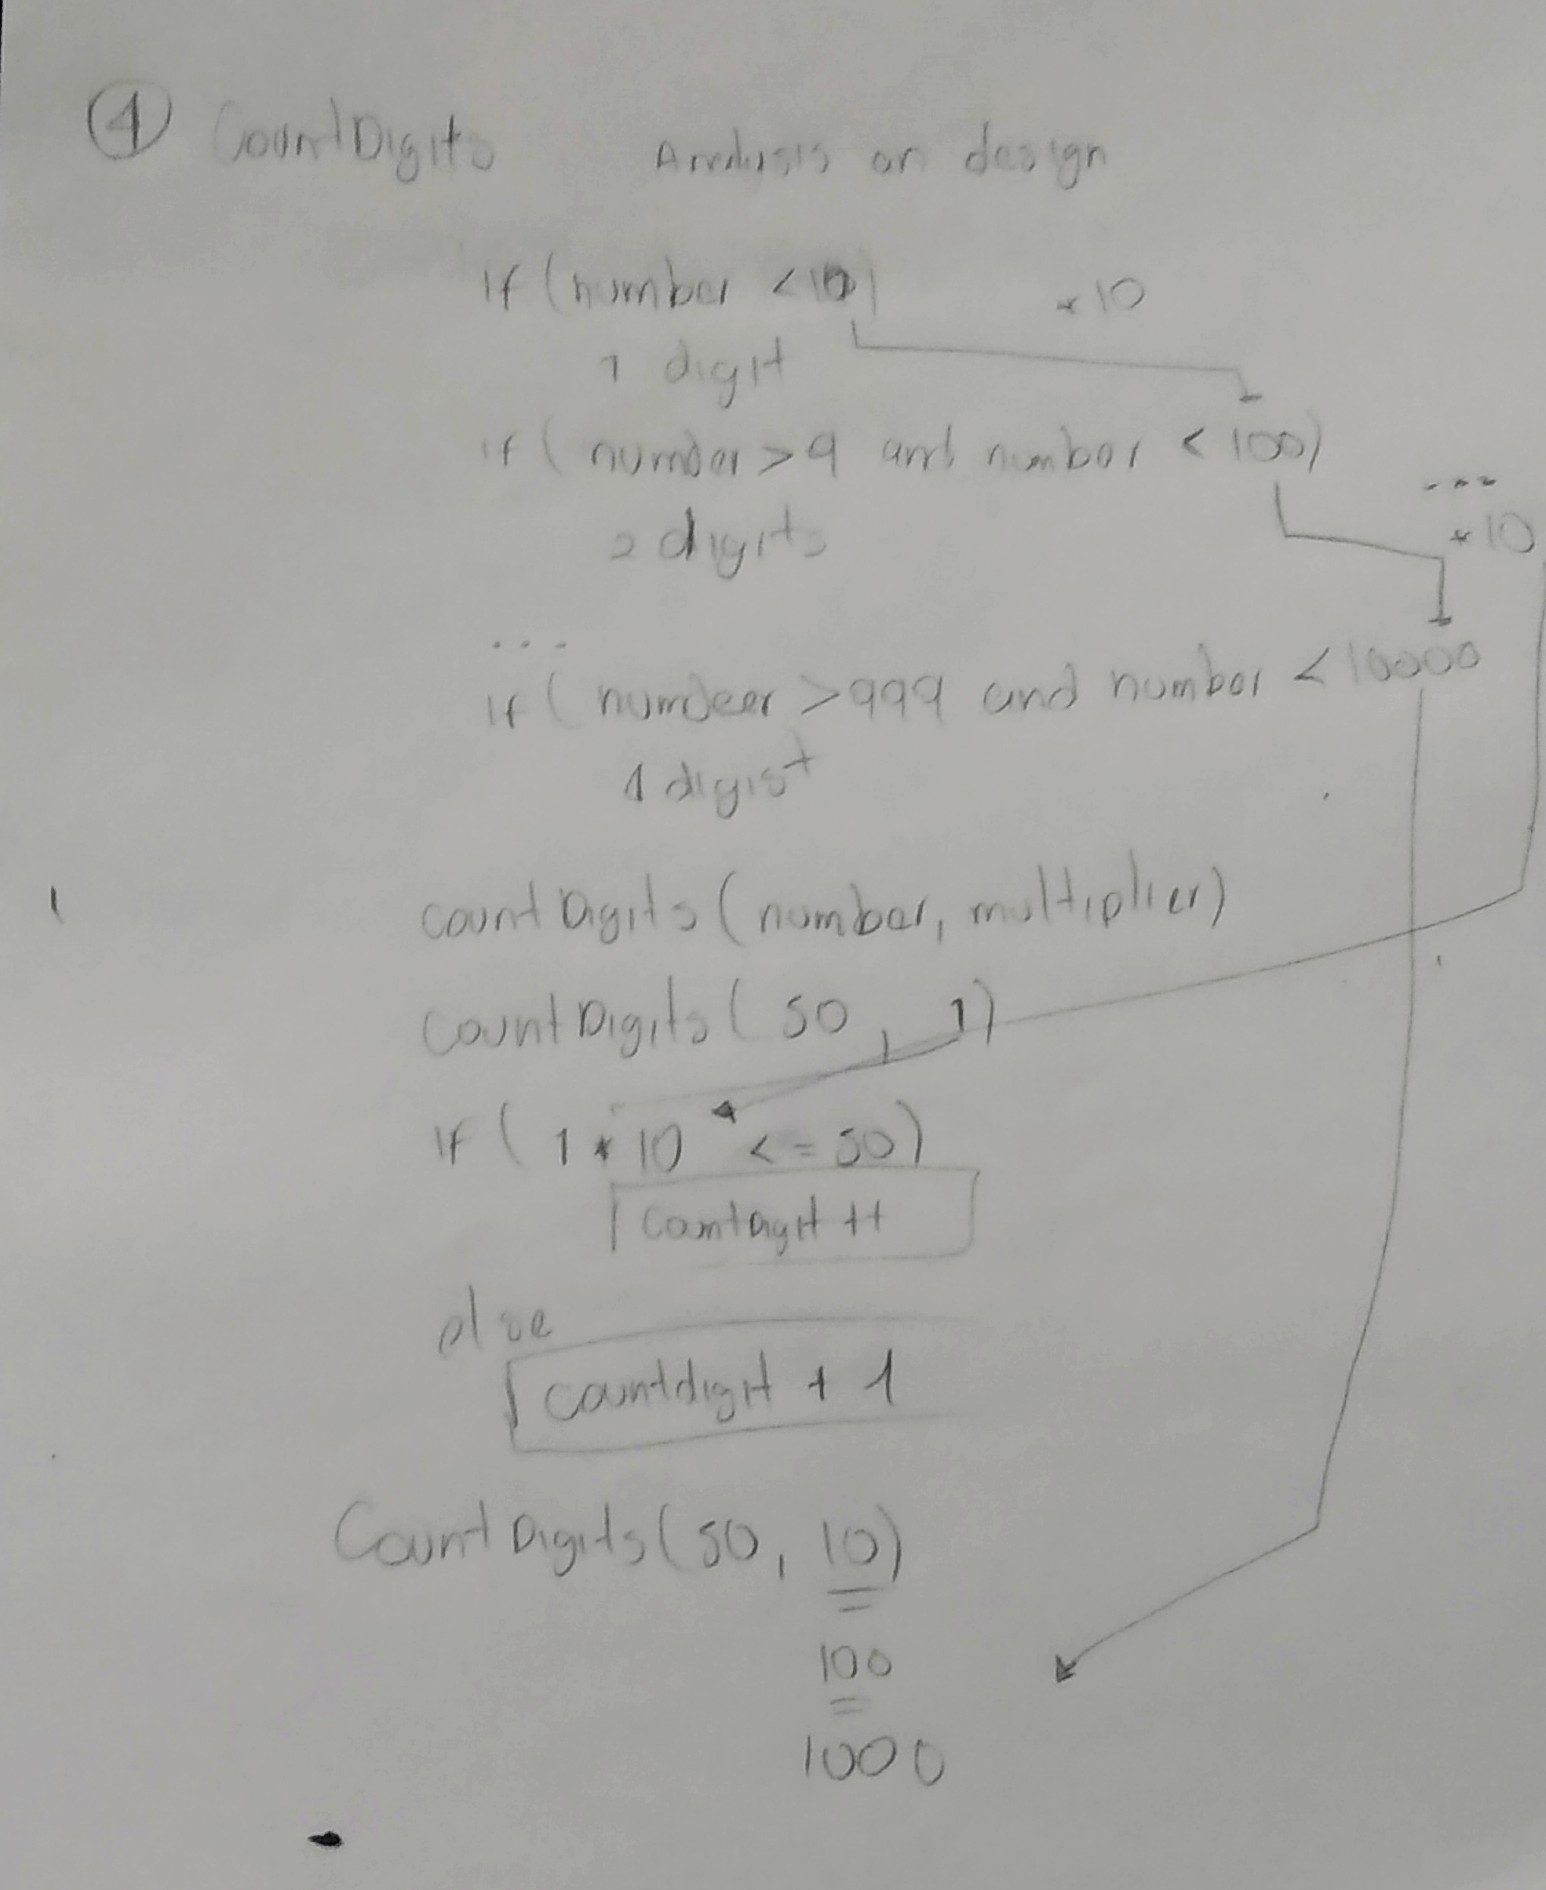 ④ CountDigits Analysis on design
if (number < 10) * 10
1 digit
if ( number > 9 and number < 100)
...
2 digits * 10
...
if ( number > 999 and number < 10000
4 digist
countDigits (number, multiplier)
CountDigits ( 50 , 1)
if ( 1 * 10 <= 50)
countdigit ++
else
countdigit + 1
CountDigits (50, 10)
100
1000